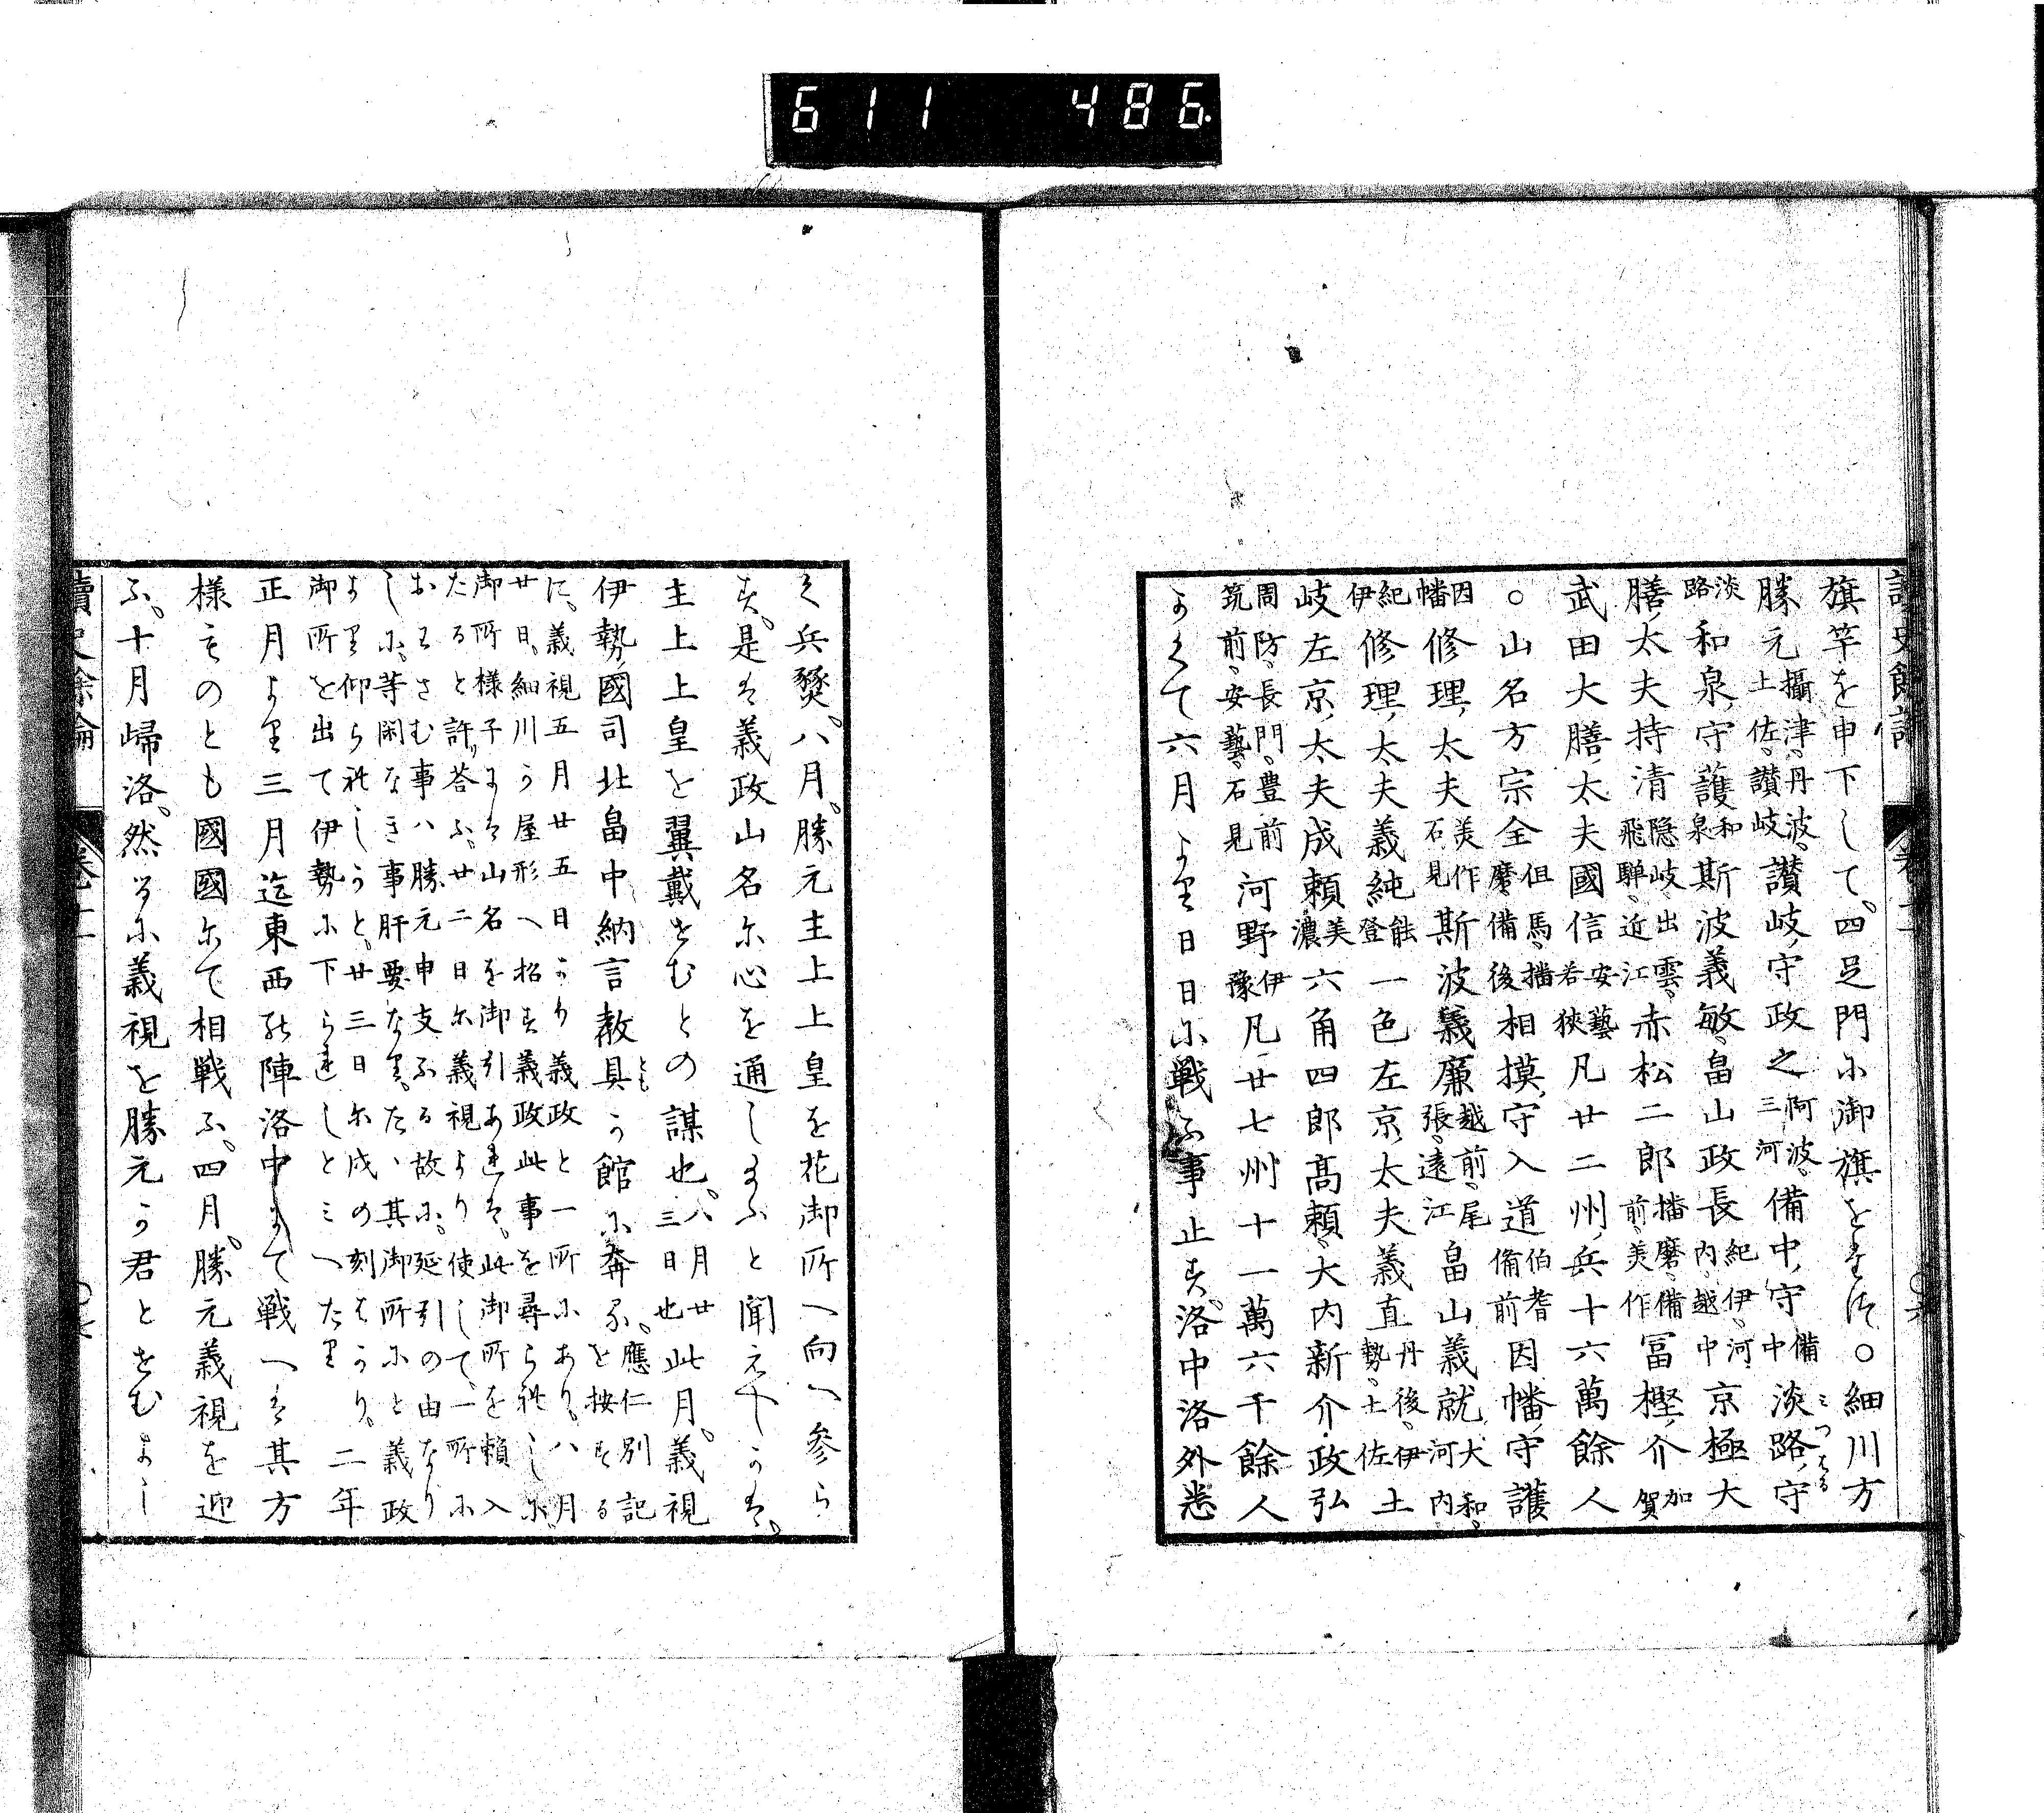 611 486.
旗竿を申下して。四足門尓御旗をたつ。○細川方
勝元攝津、丹波、土佐、讃岐、讃岐守政之阿波、三河備中守備中淡路守
淡路和泉守護和泉斯波義敏畠山政長紀伊、河内、越中京極大
膳太夫持清隠岐、出雲、飛騨、近江赤松二郎播磨、備前、美作冨樫介加賀
武田大膳太夫國信安藝若狭凡廿二州兵十六萬餘人
○山名方宗全但馬、播磨、備後相摸守入道伯耆備前因幡守護
因幡修理太夫美作石見斯波義廉越前、尾張、遠江畠山義就大和、河内
紀伊修理太夫義純能登一色左京太夫義直丹後、伊勢、土佐土
岐左京太夫成頼美濃六角四郎髙頼大内新介政弘
周防、長門、豊前筑前、安藝、石見河野伊豫凡廿七州十一萬六千餘人
かくて六月より日日尓戦ふ事止す。洛中洛外悉
く兵燹。八月。勝元主上上皇を花御所へ向へ参ら
す。是は義政山名尓心を通しまふと聞えしかは。
主上上皇を翼戴せむとの謀也。八月廿三日也此月。義視
伊勢國司北畠中納言教具か館尓奔る。應仁別記を按する
に。義視五月廿五日より義政と一所尓あり。八月
廿日。細川う屋形へ招き義政此事を尋られし尓。
御所様子よは山名を御引あれは。此御所を頼入
たると許答ふ。廿二日尓義視より使して、一所尓
おはさむ事八勝元申支ふる故尓。延引の由なり
し尓。等閑なき事肝要なり。たゝ其御所尓と義政
より仰られしかと。廿三日尓戌の刻はかり。
御所を出て伊勢尓下られしとみへたり 二年
正月より三月迄東西の陣洛中まて戦へは其方
様ものとも國國尓て相戦ふ。四月。勝元義視を迎
ふ。十月歸洛。然る尓義視を勝元か君とせむよし